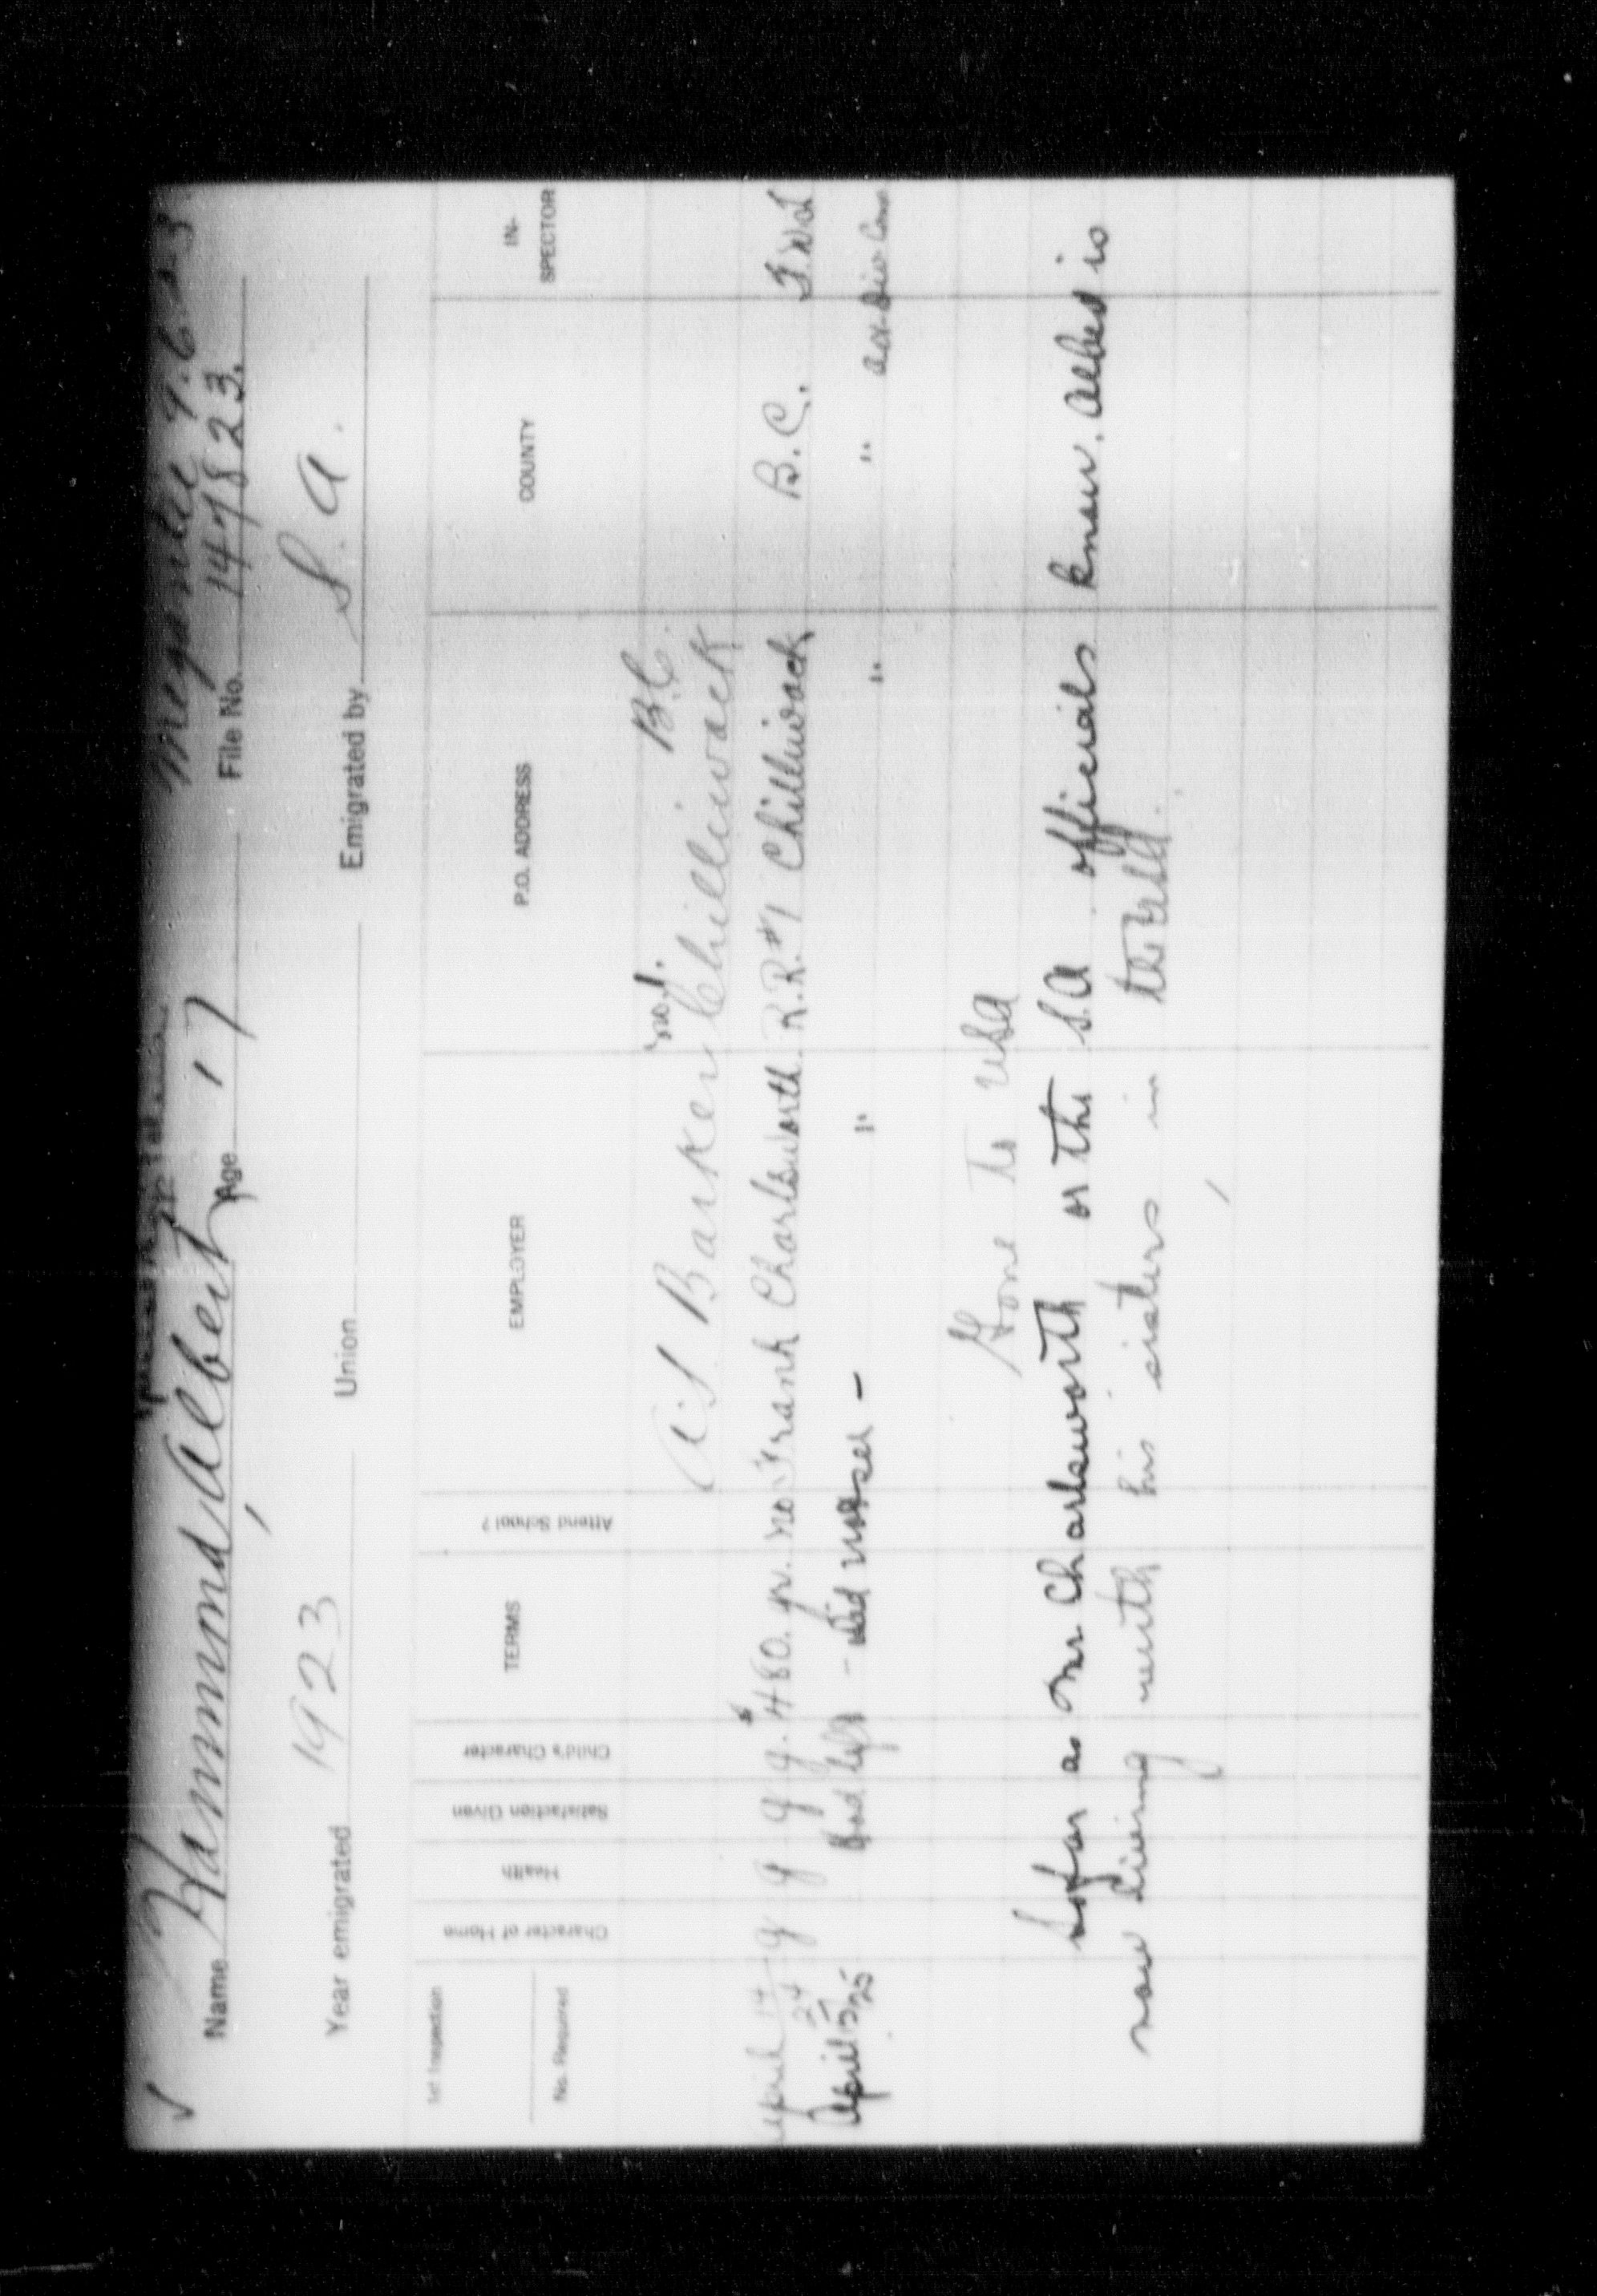 ✓ Megantic 9.6.23
Name Hammond, Albert Age 17 File No. 147823.
Year emigrated 1923 Union Emigrated by S. A.
1st Inspection
No. Required
Character of Home Health Satisfaction Given Child's Character TERMS Attend School? EMPLOYER P.O. ADDRESS COUNTY IN-SPECTOR
no 1. B.C.
A.S. Barker Chilliwack
April 14/24 g g g g. $480. yr. no Frank Charlsworth R.R. #1 Chilliwack B.C.
April 25 Had left - did not see - " " "
Gone to USA
So far as Mr Charlsworth or the S.A. officials know. Albert is
now living with his sisters in the USA.